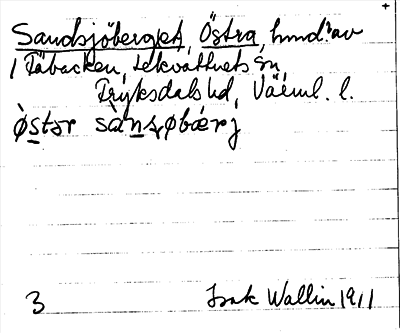 Sandsjöberget, Östra, hmd? av
/ Täbacken, Lekvattnets sn,
Fryksdals hd, Värml. l.
østər sànsøbærj
3 Isak Wallin 1911